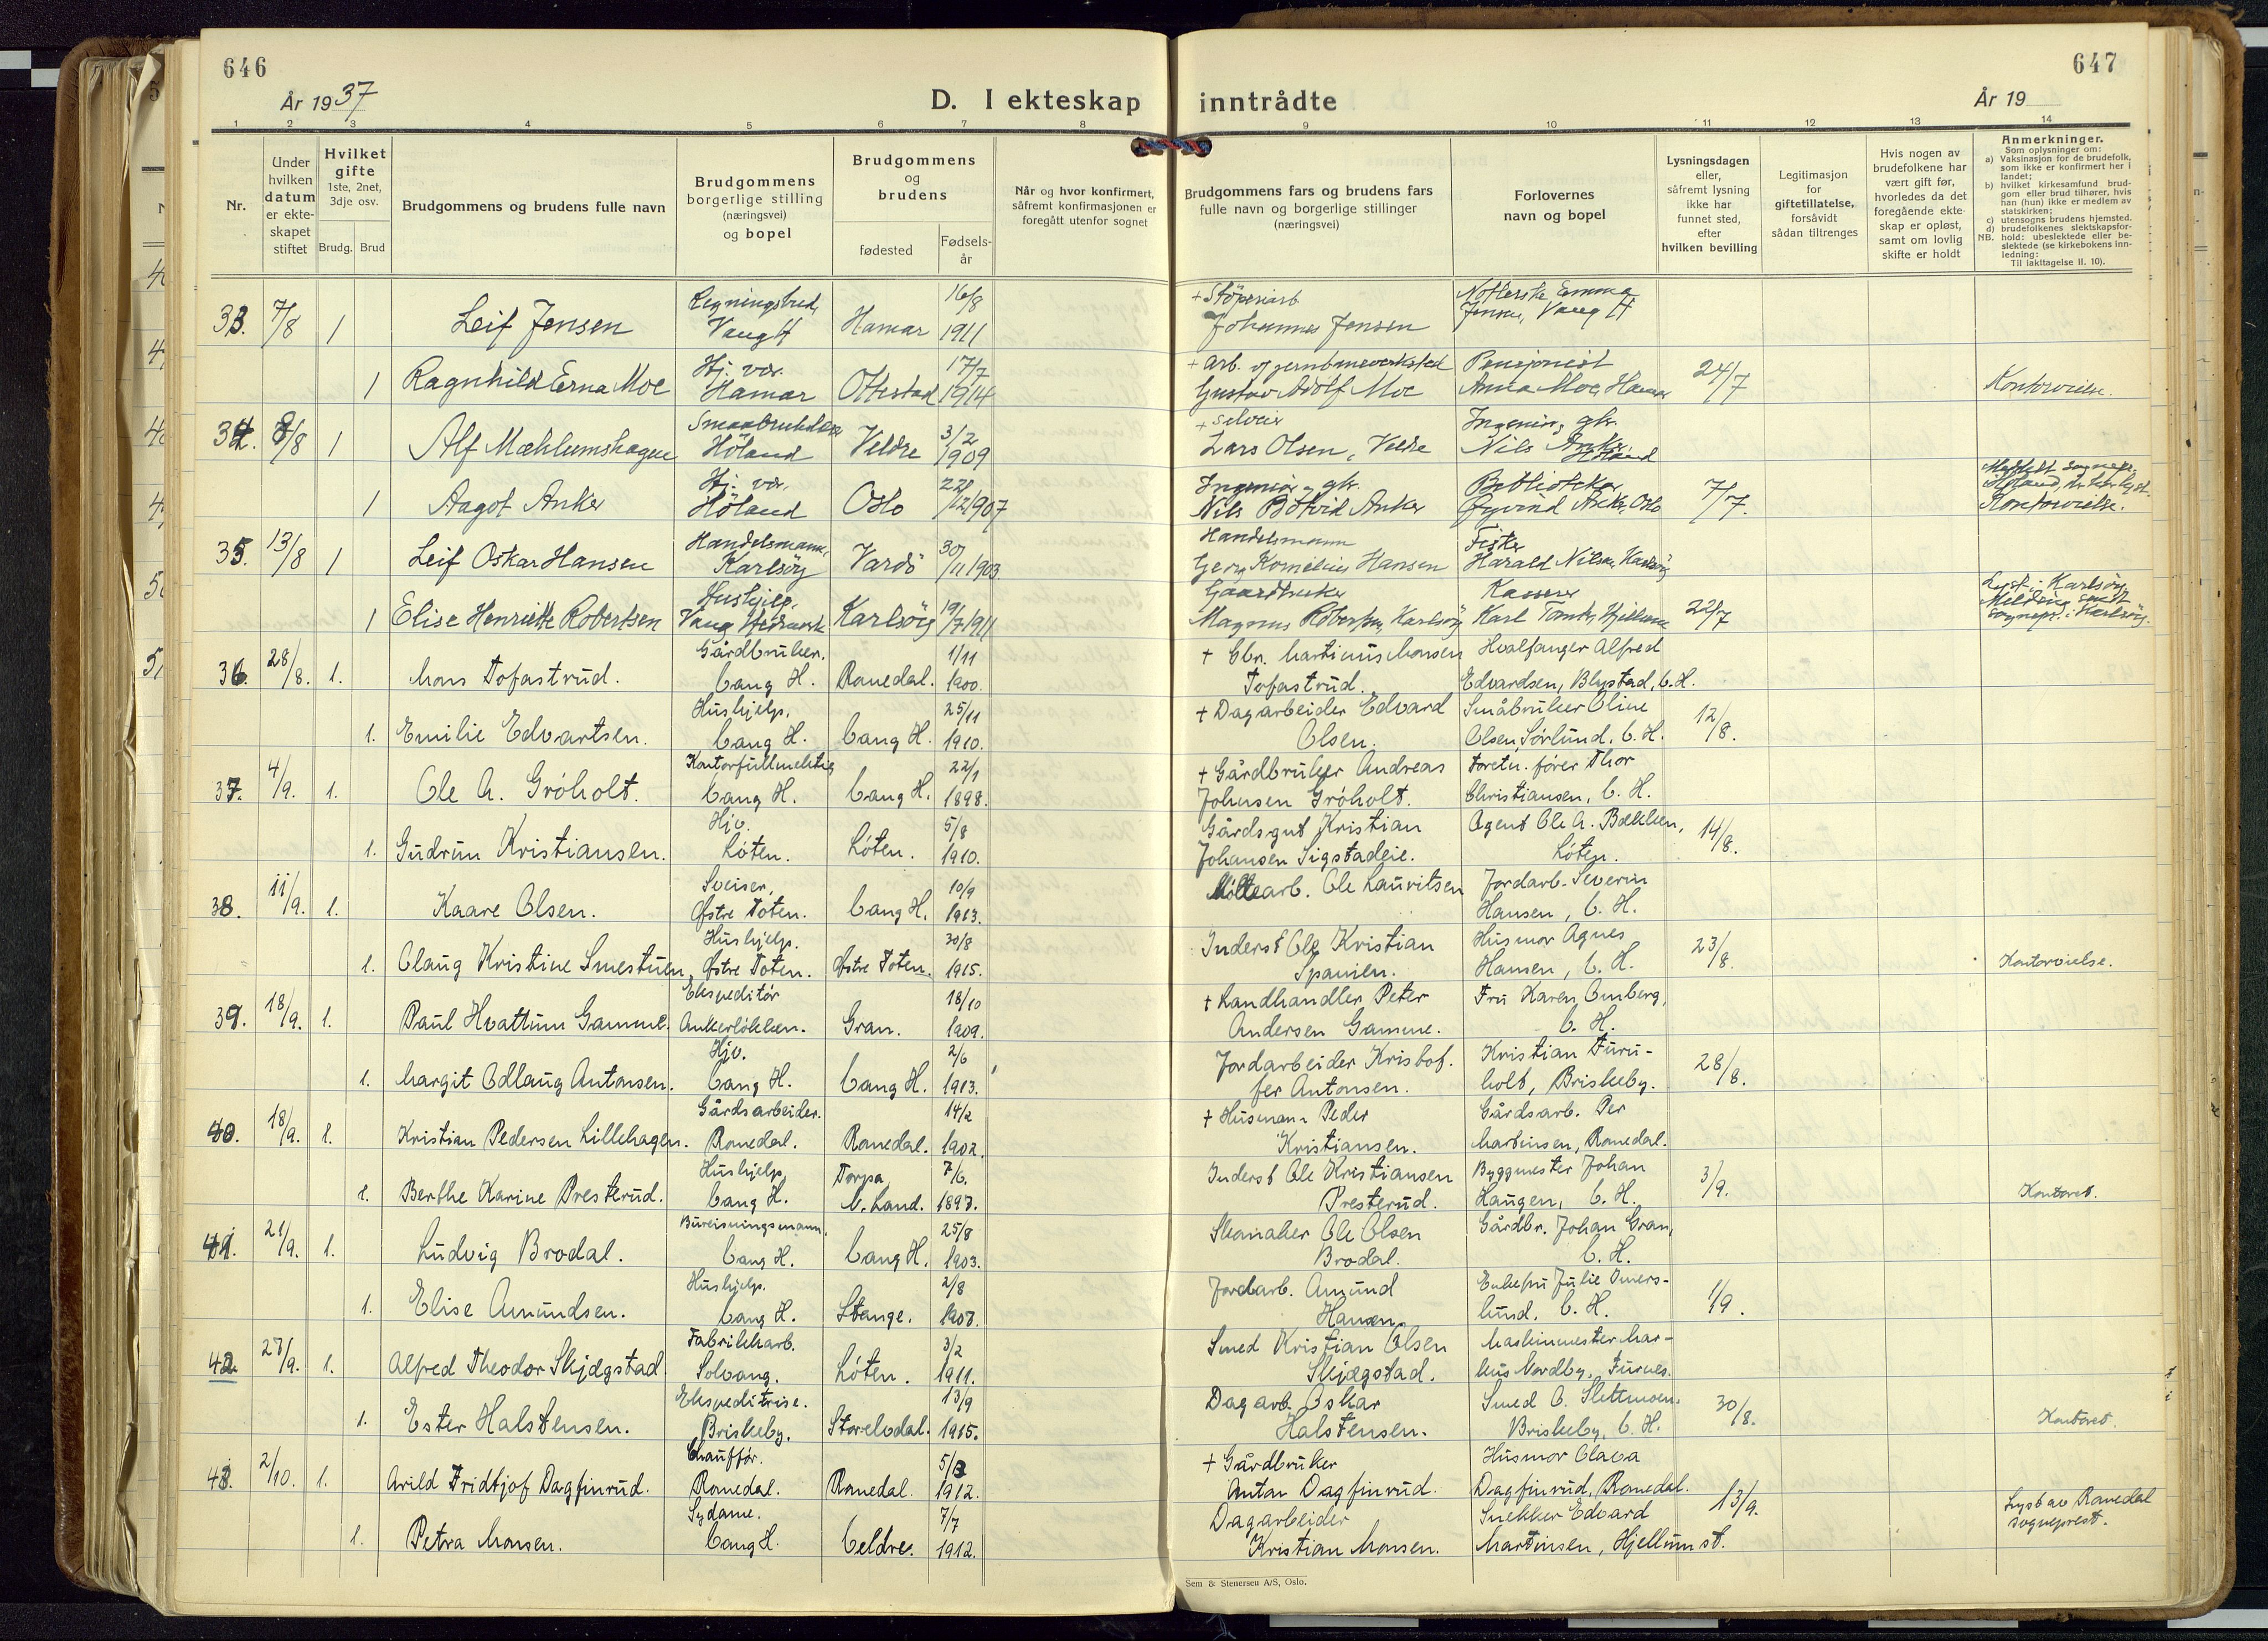 646
647
År 1937
D. I ekteskap inntrådte
År 19
1 2 3 4 5 6 7 8 9 10 11 12 13 14
Nr.
Under
hvilken
datum
er ekte-
skapet
stiftet
Hvilket
gifte
1ste, 2net,
3dje osv.
Brudg. Brud
Brudgommens og brudens fulle navn
Brudgommens
borgerlige stilling
(næringsvei)
og bopel
Brudgommens
og
brudens
fødested
Fødsels-
år
Når og hvor konfirmert,
såfremt konfirmasjonen er
foregått utenfor sognet
Brudgommens fars og brudens fars
fulle navn og borgerlige stillinger
(næringsvei)
Forlovernes
navn og bopel
Lysningsdagen
eller,
såfremt lysning
ikke har
funnet sted,
efter
hvilken bevilling
Legitimasjon
for
giftetillatelse,
forsåvidt
sådan tiltrenges
Hvis nogen av
brudefolkene har
vært gift før,
hvorledes da det
foregående ekte-
skap er opløst,
samt om lovlig
skifte er holdt
Anmerkninger.
Som oplysninger om:
a) Vaksinasjon for de brudefolk,
som ikke er konfirmert her i
landet;
b) hvilket kirkesamfund brud-
gom eller brud tilhører, hvis
han (hun) ikke er medlem av
statskirken;
c) utensogns brudens hjemsted.
d) brudefolkenes slektskapsfor-
NB. hold: ubeslektede eller be-
slektede (se kirkebokens inn-
ledning:
Til iakttagelse II. 10).
33. 7/8 1 Leif Jensen Vang H Hamar 16/8 1911 + Støperiarb Johannes Jensen Emma Jensen, Vang H
1 Ragnhild Erna Moe Hj. vær. Hamar Ottestad 17/7 1914 + Arb. Gustav Adolf Moe Pensjonist Anna Moe, Hamar 24/7 Kontorvielse.
34. 8/8 1 Alf Mæhlumshagen Smaabruker Höland Veldre 3/2 1909 + Selveier Lars Olsen, Veldre Ingeniör, gbr. Nils Anker Höland
1 Aagot Anker Hj. vær. Höland Oslo 22/12 1907 Ingeniör, gbr. Nils Botvid Anker Öyvind Anker, Oslo 7/7. Kontorvielse.
35. 13/8 1 Leif Oskar Hansen Handelsmann. Karlsöy Vardö 30/11 1903 Handelsmann Kornelius Hansen Fisker Harald Nilsen, Karlsöy
1 Elise Henriette Robertsen Hushjelp. Vang Hedmark Karlsöy 19/7 1911 Gaardbruker Magnus Robertsen, Karlsöy Kasserer Karl Hjellum 22/7 Lyst i Karlsöy sognepr. i Karlsöy.
36. 28/8. 1. Mons Tofastrud. Gårdbruker. Vang H. Romedal. 1/11 1900. + Gbr. Martinus Monsen Tofastrud. Hvalfanger Alfred Edvardsen, Blystad, V. H.
1. Emilie Edvartsen. Hushjelp. Vang H. Vang H. 25/11 1910. + Dagarbeider Edvard Olsen. Småbruker Oline Olsen, Sørlund, V. H. 12/8.
37. 4/9. 1. Ole A. Gröholt. Kontorfullmektig Vang H. Vang H. 22/1 1898. + Gårdbruker Andreas Johnsen Gröholt. Foretn. fører Thor Christiansen, V. H.
1. Gudrun Kristiansen. Hjv. Løten. Løten. 5/8 1910. Gårdsgut Kristian Johansen Sigstadeie. Agent Ole A. Bækken, Løten. 14/8.
38. 11/9. 1. Kaare Olsen. Sveiser, Østre Toten. Vang H. 10/9 1913. Ole Lauritsen Jordarb. Severin Hansen, V. H.
1. Olaug Kristine Smestuen, Hushjelp. Østre Toten. Østre Toten. 30/8 1915. Inderst Ole Kristian Spanien. Husmor Agnes Hansen, V. H. 23/8. Kontorvielse.
39. 18/9. 1. Paul Hvattum Gamme. Ekspeditør Ankerløkken. Gran. 18/10 1909. + Landhandler Peter Andersen Gamme. Fru Karen Omberg, V. H.
1. Margit Odlaug Antonsen. Hjv. Vang H. Vang H. 2/6 1913. Jordarbeider Kristof- fer Antonsen. Kristian Furu- holt, Briskeby. 28/8.
40. 18/9. 1. Kristian Pedersen Lillehagen. Gårdsarbeider. Romedal. Romedal. 14/2 1902. + Husmann Peder Kristiansen. Gårdsarb. Per Martinsen, Romedal.
1. Berthe Karine Presterud. Hushjelp, Vang H. Torpa N. Land. 7/6. 1897. Inderst Ole Kristiansen Presterud. Byggmester Johan Haugen, V. H. 3/9. Kontoret.
41. 21/9. 1. Ludvig Brodal. Bureisningsmann, Vang H. Vang H. 25/8 1903. Skomaker Ole Olsen Brodal. Gårdbr. Johan Gran, V. H.
1. Elise Amundsen. Hushjelp. Vang H. Stange. 2/8 1908. Jordarb. Amund Hansen. Enkefru Julie Imers- lund. V. H. 1/9.
42 27/9. 1. Alfred Theodor Skjægstad Fabrikkarb. Solvang. Løten. 3/2 1911. Smed Kristian Olsen Skjægstad. Maskinmester Mar- kus Nordby, Furnes.
1. Ester Halstensen. Ekspeditrise. Briskeby. Storelvdal. 13/9 1915. Dagarb. Oskar Halstensen. Smed O. Slettmoen, Briskeby, V. H. 30/8. Kontoret.
43. 2/10. 1. Arild Fridtjof Dagfinrud. Chauffør. Romedal. Romedal. 1912. + Gårdbruker Anton Dagfinrud. Husmor Olava Dagfinrud, Romedal.
1. Petra Monsen. Sydame. Vang H. Veldre. 7/7 1912. Dagarbeider Kristian Monsen. Snekker Edvard Martinsen, Hjellum st. 13/9. Lyst av Romedal sogneprest.
Sem & Stenersen A/S, Oslo.